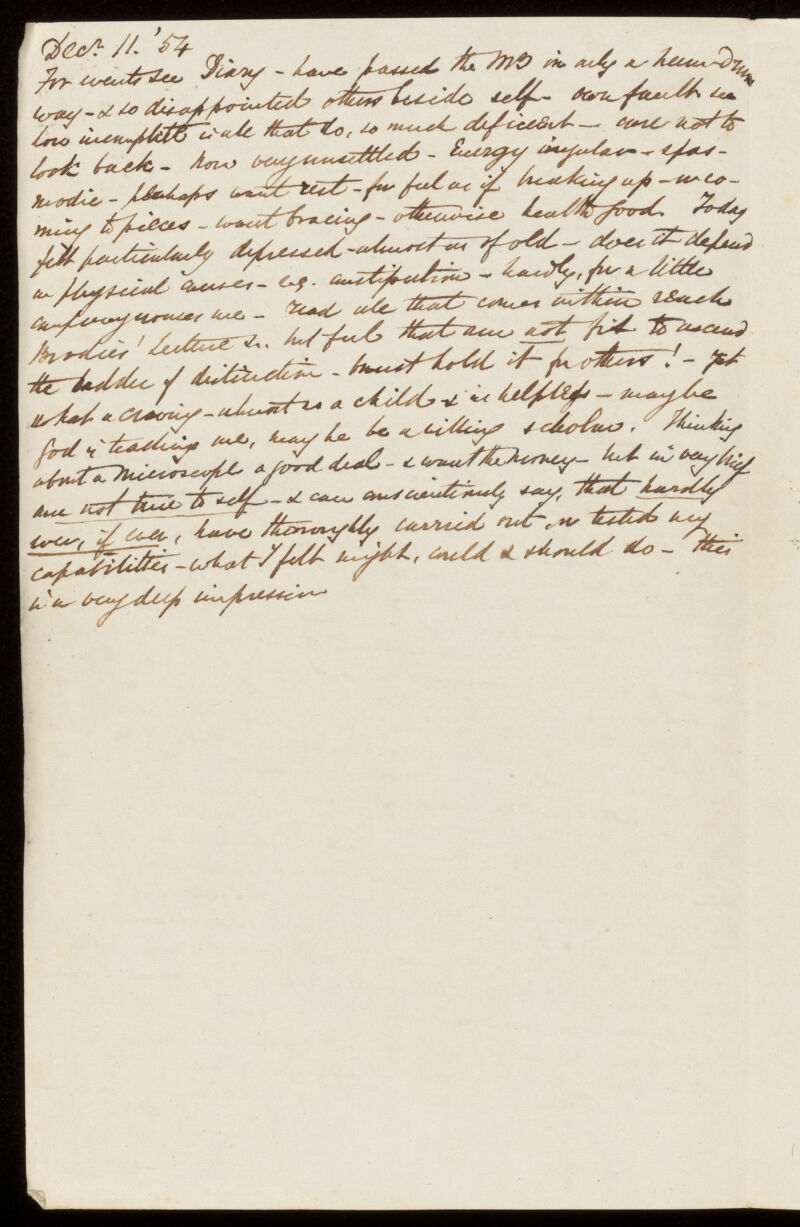 Decr. 11. '54
For events see Diary - have passed the MB in only a hum-Drum
way - & so disappointed others beside self - own fault see
how incomplete in all that do, so much deficient - care not to
look back - Now very unsettled - Energy irregular - spas-
modic - perhaps want rest - for feel as if breaking up - or co-
ming to pieces - want bracing - otherwise health good. Today
felt particularly depressed - almost as of old - does it depend
on physical causes - e.g. constipation - hardly, for a little
company rouses me - read all that comes within reach
Brodies' Lecture &c. but feel that am not fit to ascend
the ladder of distinction - but must hold it for others! - yet
what a craving - almost as a child & as helpless - maybe
God is teaching me, may he be a willing scholar. Thinking
about a Microscope a good deal - & want the money - but in very brief
am not true to self - & can conscientiously say, that hardly
ever, if ever, have thoroughly carried out or tested my
capabilities - what I felt might, could & should do - this
is a very deep impression